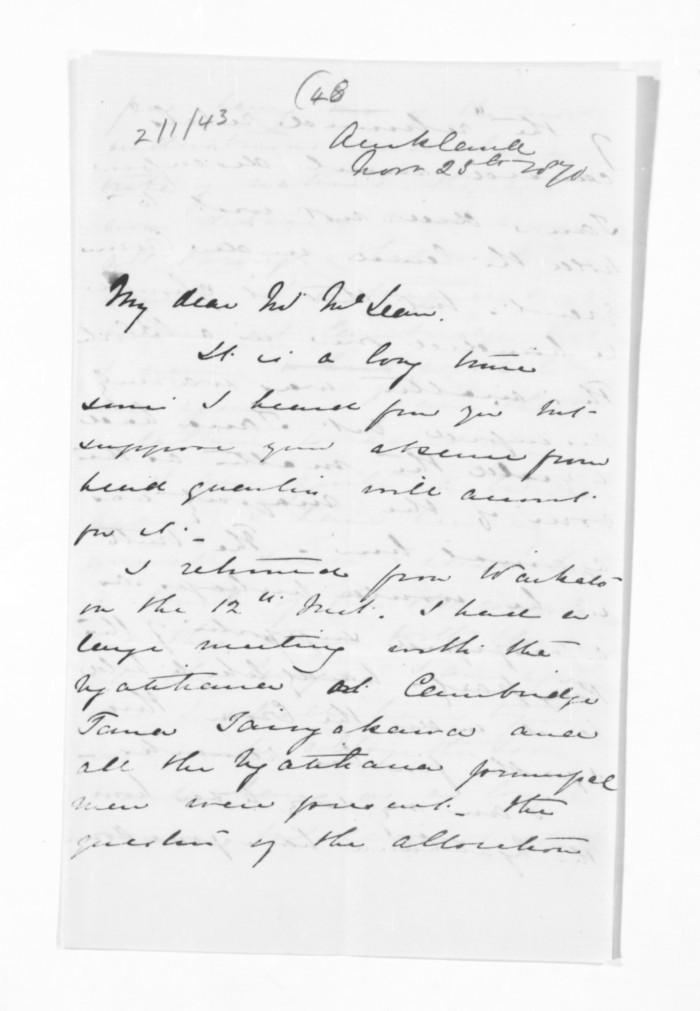 (48
2/1/43
Auckland
Novr 23rd 1870
My dear Mr McLean.
It is a long time
since I heard from you but
suppose your absence from
head quarters will account
for it. -
I returned from Waikato
on the 12th Inst. I had a
large meeting with the
Ngatihaua at Cambridge
Tana Taingakawa and
all the Ngatihaua principal
men were present - the
question of the allocation